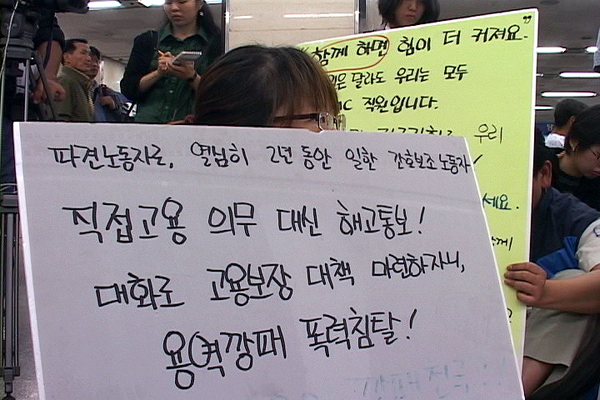 파견노동자로, 열심히 2년 동안 일한 간호보조 노동자!
직접고용 의무 대신 해고통보!
대화로 고용보장 대책 마련하자니,
용역깡패 폭력침탈!
함께 하면 힘이 더 커져요.
달라도 우리는 모두
직원입니다.
우리
세요.
함께